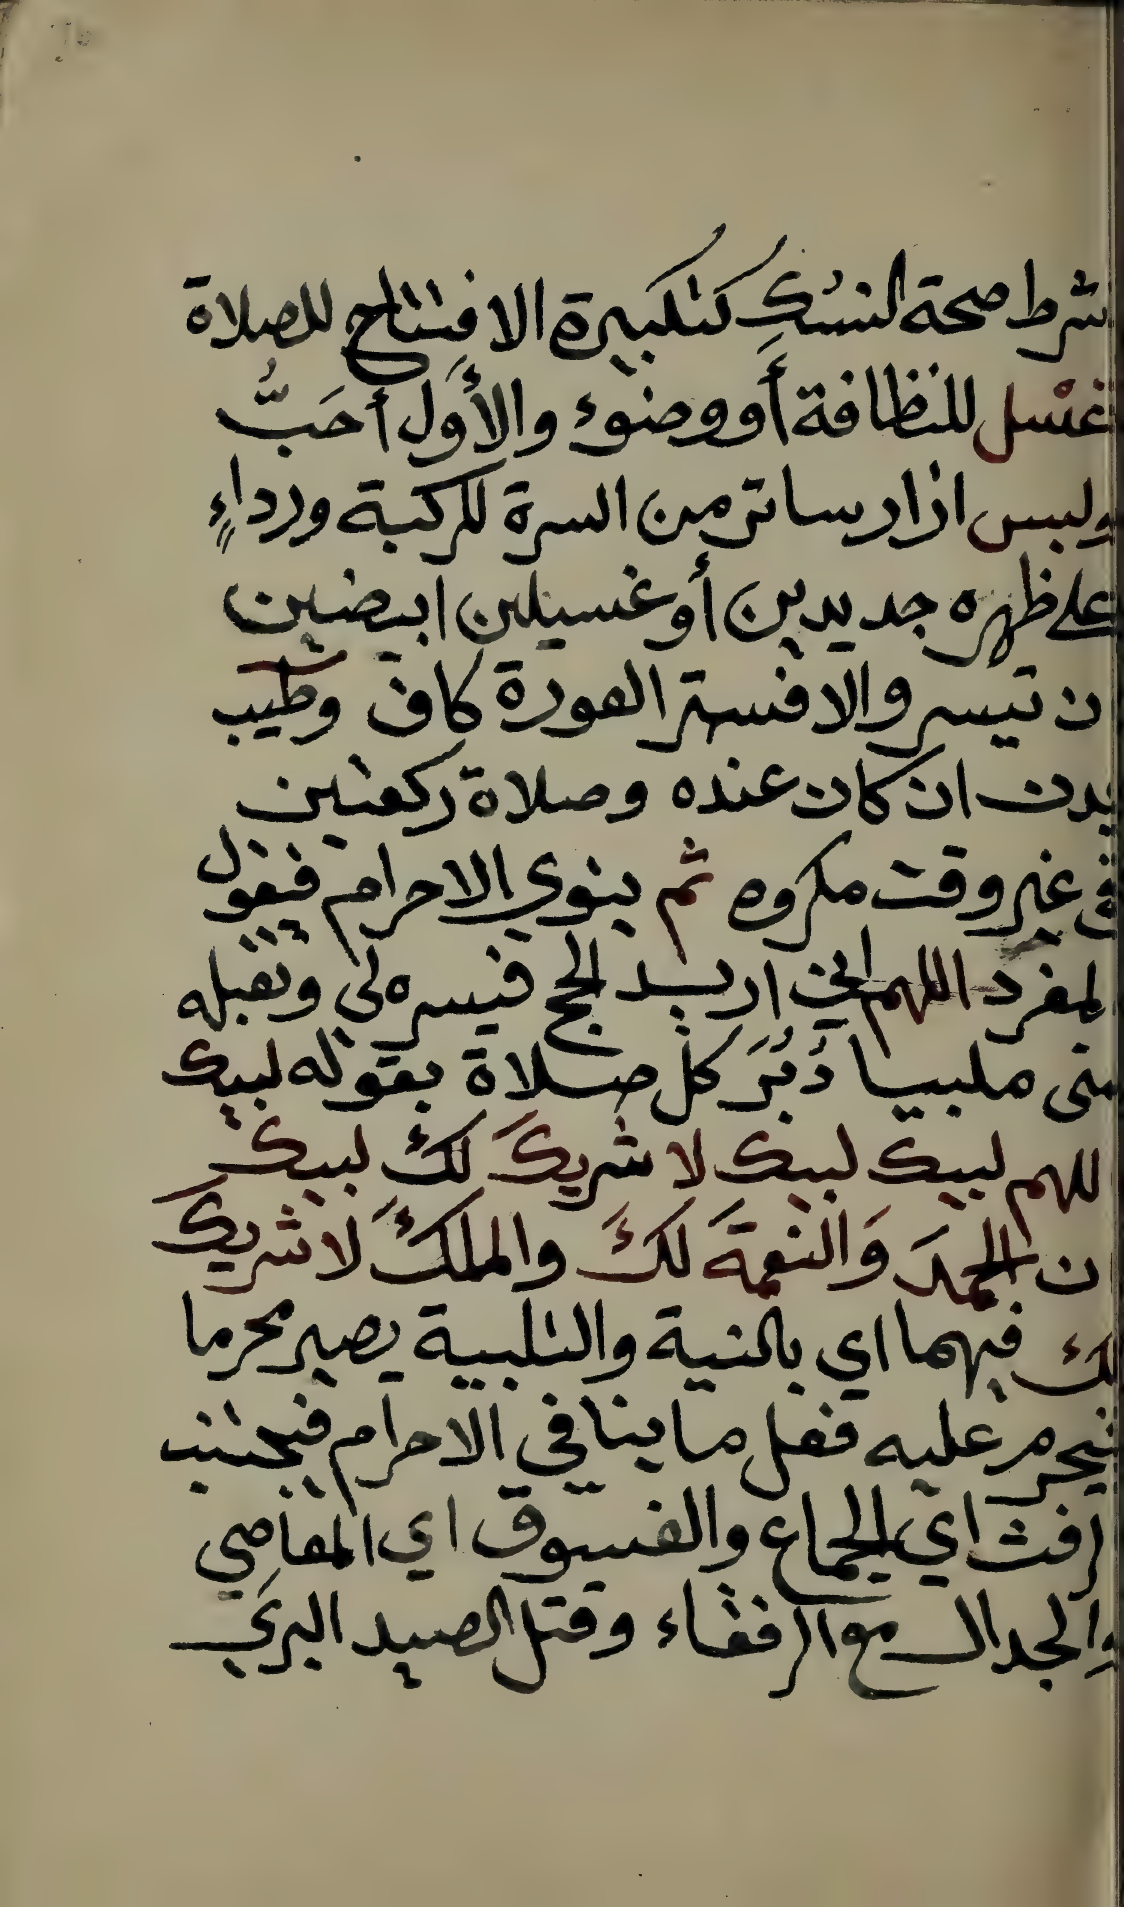 شرط صحة النسُكِ كتكبيرة الافتتاح للصلاة
غسْل للنظافة أَو وضوء والأَوّل أحَبُّ
ولبس ازار ساتر من السرة للركبة ورداءٍ
على ظهره جديدين أو غسيلين ابيضين
ن تيسر والا فستر العورة كاف وطيب
بدن ان كان عنده وصلاة ركعتين
في غير وقت مكروه ثم ينوي الاحرام فيقول
لمفرد اللهم اني اريد الحج فيسره لي وتقبله
مني ملبيا دُبُرَ كل صلاة بقوله لبيك
للهم لبيك لبيك لا شريكَ لك لبيك
ن الحمدَ وَالنعمَةَ لكَ والملكَ لا شريكَ
لك فبهما اي بالنية والتلبية يصير محرما
فيحرم عليه فعل ما ينافي الاحرام فيجتنب
لرفث اي الجماع والفسوق اي المعاصي
والجدال مع الرفقاء وقتل الصيد البري